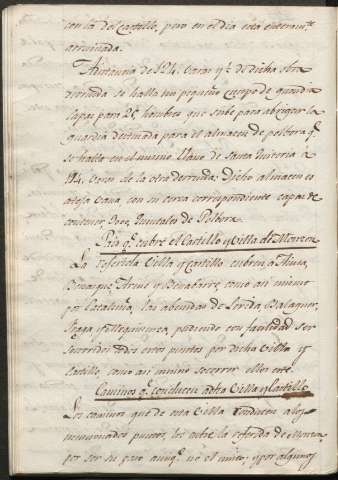 con la del castillo, pero en el dia esta enteram.te
arruinada.
A distancia de 124. varas q.e de dicha obra
se halla un pequeño cuerpo de guardia
capaz para 25 hombres que sube para abrigar la
guardia destinada para el almacen de polvora q.e
se halla en el mismo llano de santa Quiteria a
114. varas de la otra derruida: dicho almacen es
con su cerca correspondiente capaz de
contener Quintales de Polvora.
Pais q.e cubre el Castillo y Villa de Monzon
La referida Villa y Castillo cubren a Fraga,
y Benavarre, como asi mismo
por Cataluña, las abenidas de Lerida, Balaguer,
Fraga y Mequinenza, pudiendo con facilidad ser
socorridos todos estos puntos por dicha Villa y
Castillo como asi mismo socorrer ellos este.
Caminos q.e conducen a dha Villa y Castillo
Los caminos que de esta Villa conducen a los
puntos, los cubre la referida de Monzon
por ser su paso aunq.e no el unico, y por algunos